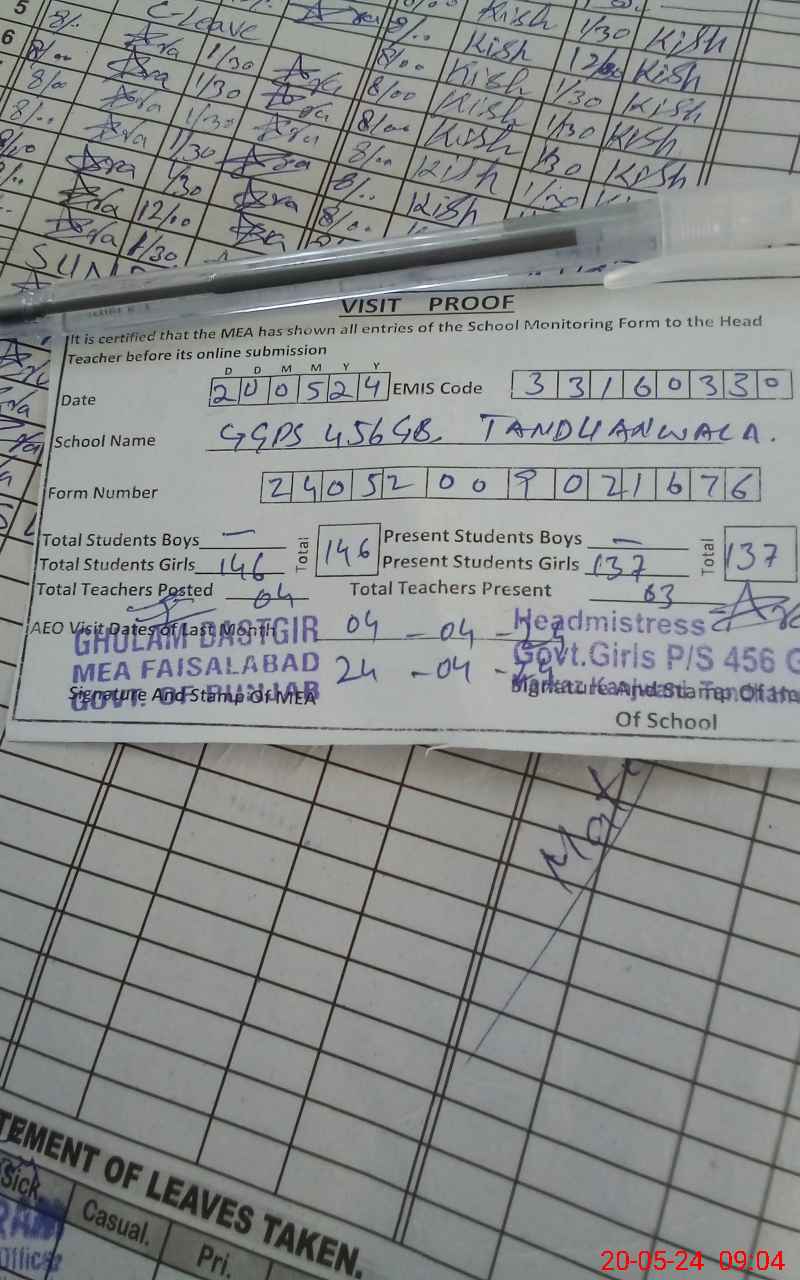 5 8/. C-Leave 8/00 Kish 1/30 Kish
6 8/.. Asra 1/30 8/.. Kish 12/30 Kish
8/00 Asra 1/30 Asra 8/00 Kish 1/30 Kish
8/.. Asra 1/30 Asra 8/00 Kish 1/30 Kish
8/00 Asra 1/30 Asra 8/.. Kish 1/30 Kish
Asra 1/30 Asra 8/.. Kish 1/30
Asra 12/00 Asra 8/00
Asra 1/30
VISIT PROOF
It is certified that the MEA has shown all entries of the School Monitoring Form to the Head
Teacher before its online submission
D D M M Y Y
Date 200524 EMIS Code 33160330
School Name GGPS 456GB, TANDLIANWALA.
Form Number 24052009021676
Total Students Boys — Total 146 Present Students Boys — Total 137
Total Students Girls 146 Present Students Girls 137
Total Teachers Posted 04 Total Teachers Present 03
AEO Visit Dates of Last Month 04-04-24
24-04-24
GHULAM DASTGIR
MEA FAISALABAD
GOVT. OF PUNJAB
Signature And Stamp Of MEA
Headmistress
Govt.Girls P/S 456 G
Signature And Stamp Of
Of School
TEMENT OF LEAVES TAKEN.
Sick Casual. Pri.
20-05-24 09:04